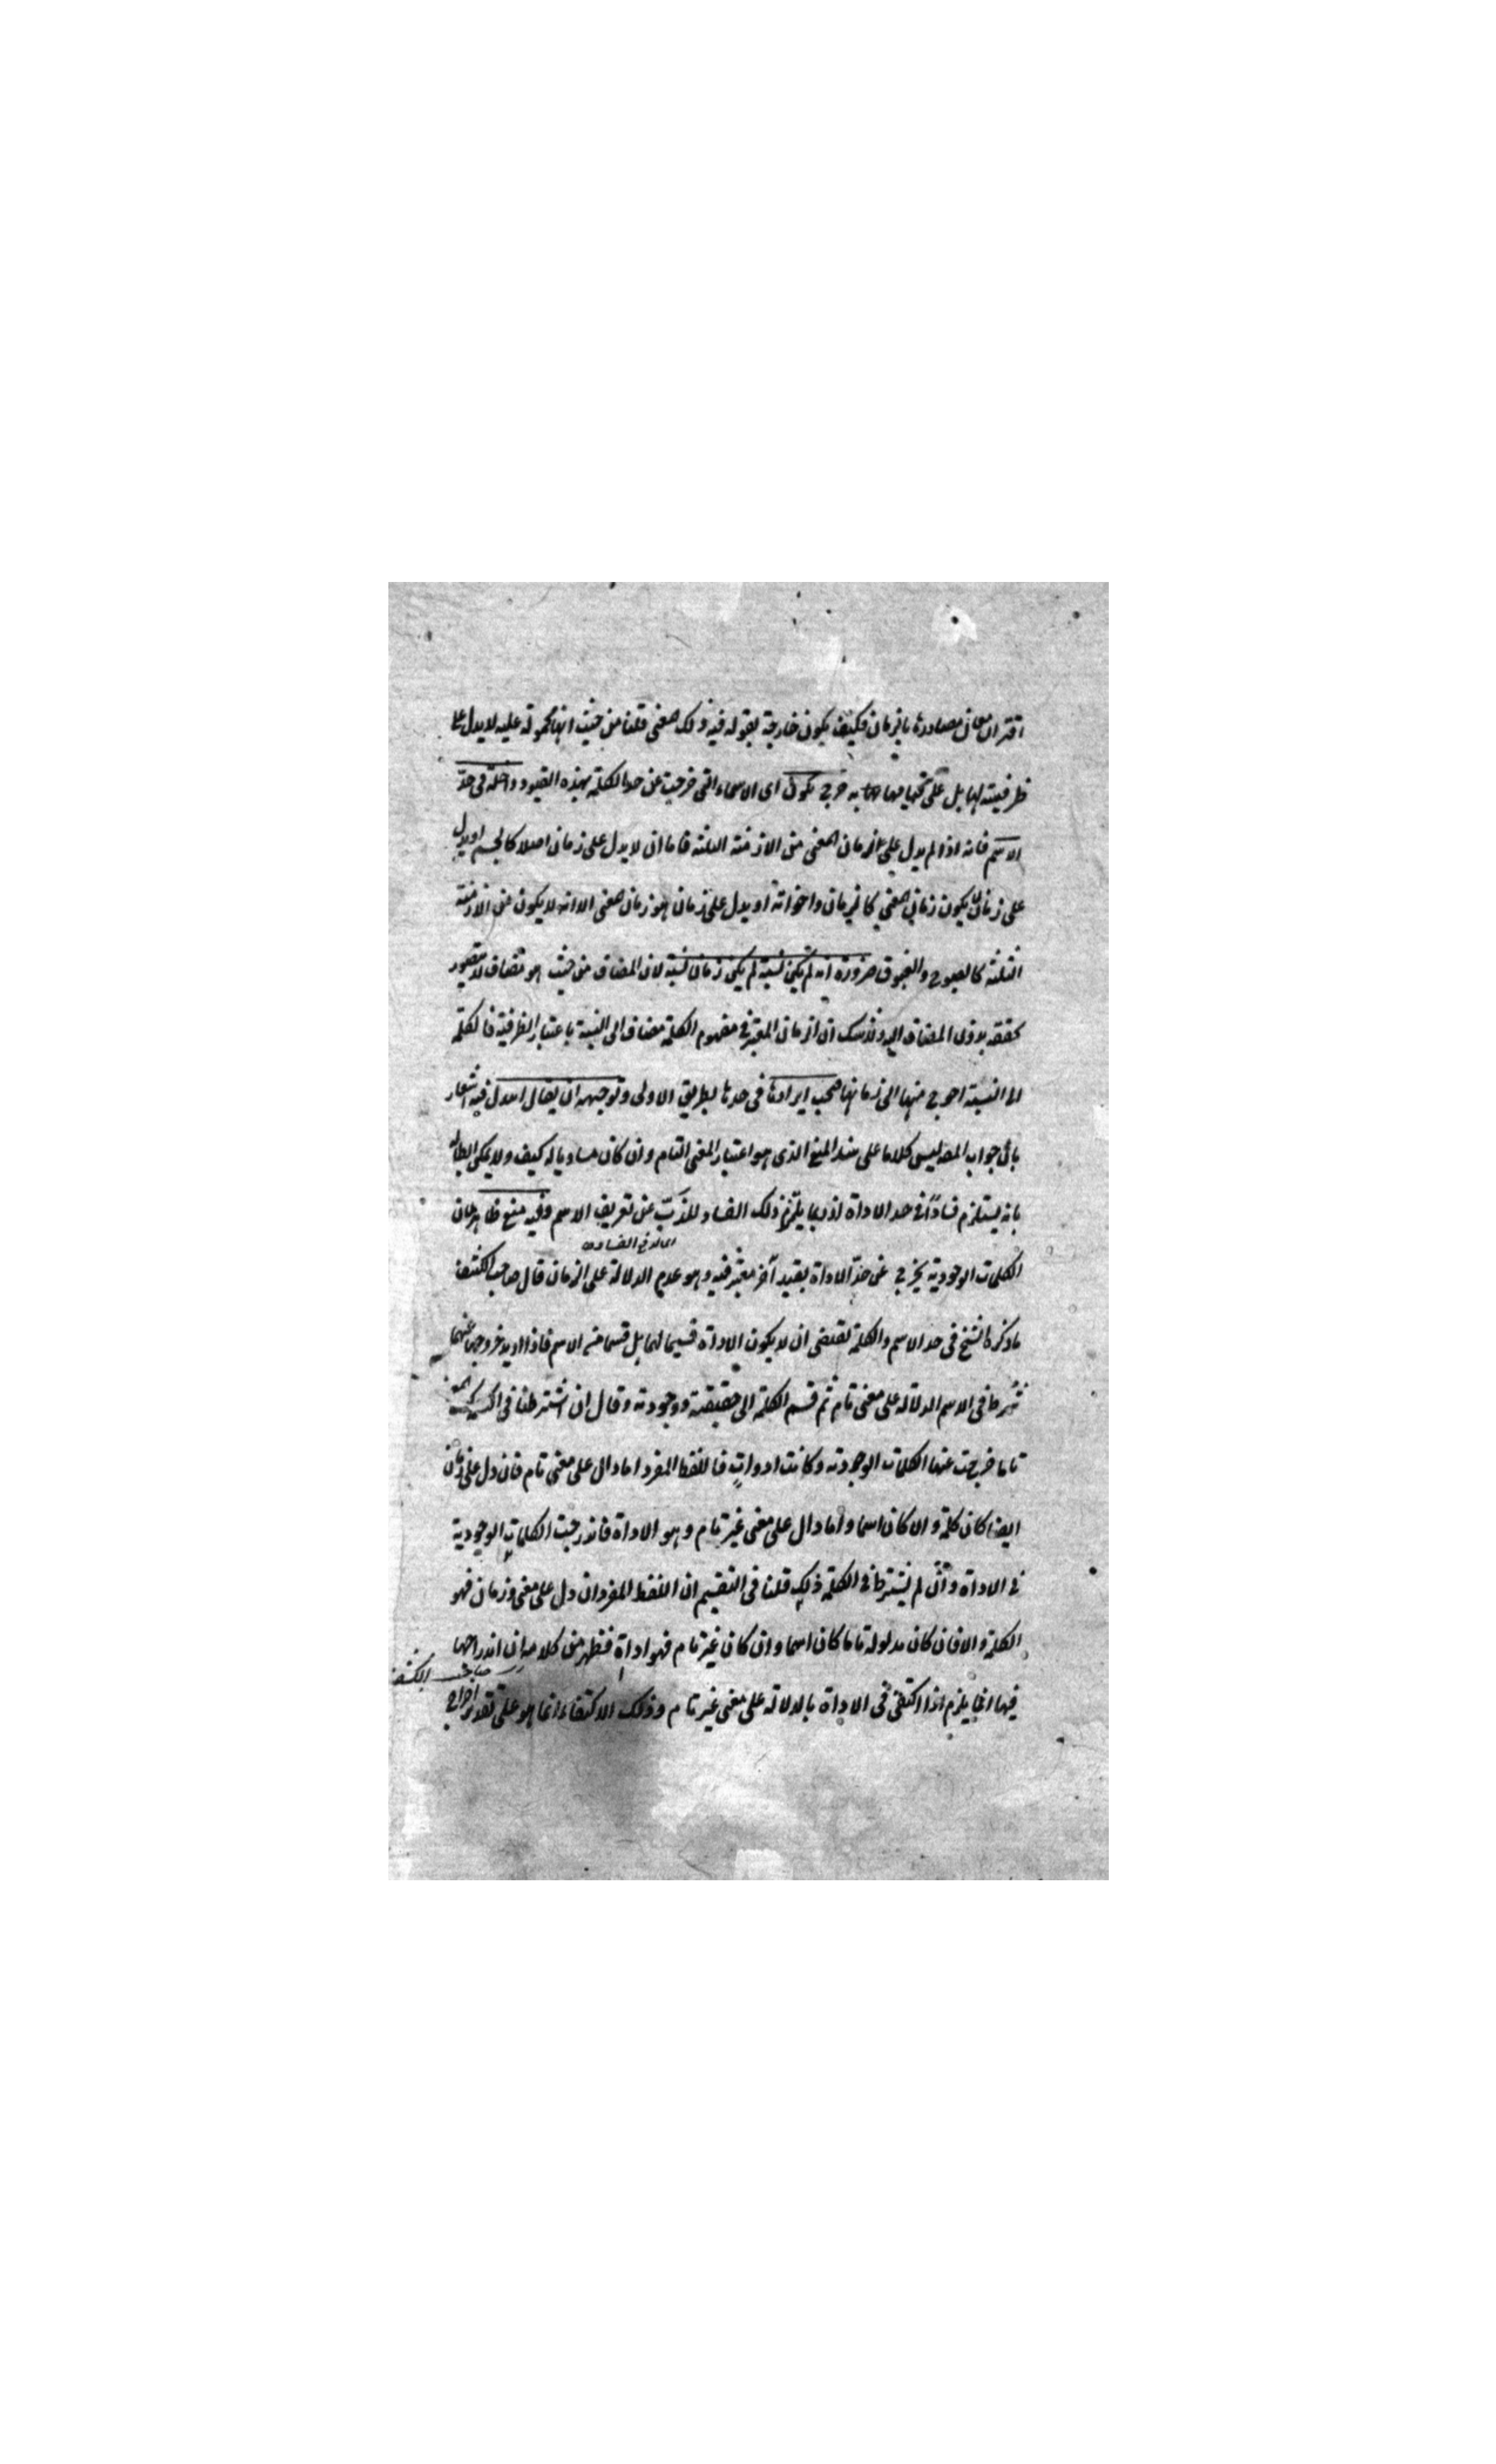 اقتران معانى مصادرها بالزمان فكيف يكون خارجة بقوله فيه ذلك المعنى قلنا من حيث انها محمولة عليه لا يدل على
ظرفيته لها بل على به خرج يكون اى الاسماء التى خرجت عن حد الكلمة بهذه القيود داخلة فى حدّ
الاسم فانه اذا لم يدل على زمان المعنى من الازمنة الثلثة فاما ان لا يدل على زمان اصلا كالجسم او يدل
على زمان لا يكون زمان المعنى كالزمان واخواته او يدل على زمان هو زمان المعنى الا انه لا يكون من الازمنة
الثلثة كالصبوح والغبوق ضرورة انه لم يكن نسبة لم يكن زمان نسبة لان المضاف من حيث هو مضاف لا يتصور
تحققه بدون المضاف اليه ولا شك ان الزمان المعتبر فى مفهوم الكلمة مضاف الى النسبة باعتبار الظرفية فالكلمة
الى النسبة احوج منها الى زمانها فيجب ايرادها فى حدها بطريق الاولى وتوجيهه ان يقال فيه اشعار
بان جواب المصـ ليس كلاما على سند المنع الذى هو اعتبار المعنى التام وان كان مساويا له كيف ولا يمكن ابطاله
بانه يستلزم فسادا فى حد الاداة اذ ربما يلتزم ذلك الفساد للذبّ عن تعريف الاسم وفيه منع ظاهر فان
الكلمات الوجودية يخرج عن حدّ الاداة بقيد آخر معتبر فيه وهو عدم الدلالة على الزمان قال صاحب الكشف
ما ذكره الشيخ فى حد الاسم والكلمة يقتضى ان لا يكون الاداة قسيما لهما بل قسما من الاسم فاذا اريد خروجها عنهما
شرط فى الاسم الدلالة على معنى تام ثم قسم الكلمة الى حقيقية ووجودية وقال ان اشترطنا فى
تاما خرجت عنها الكلمات الوجودية وكانت ادوات فاللفظ المفرد اما دال على معنى تام فان دل على زمان
ايضا كان كلمة والا كان اسما واما دال على معنى غير تام وهو الاداة فاندرجت الكلمات الوجودية
فى الاداة وان لم نشترط فى الكلمة ذلك قلنا فى التقسيم ان اللفظ المفرد ان دل على معنى وزمان فهو
الكلمة والا فان كان مدلوله تاما كان اسما وان كان غير تام فهو اداة فظهر من كلامه ان اندراجها
صاحب الكشف
فيها انما يلزم اذا اكتفى فى الاداة بالدلالة على معنى غير تام وذلك الاكتفاء انما هو على تقدير اخراج